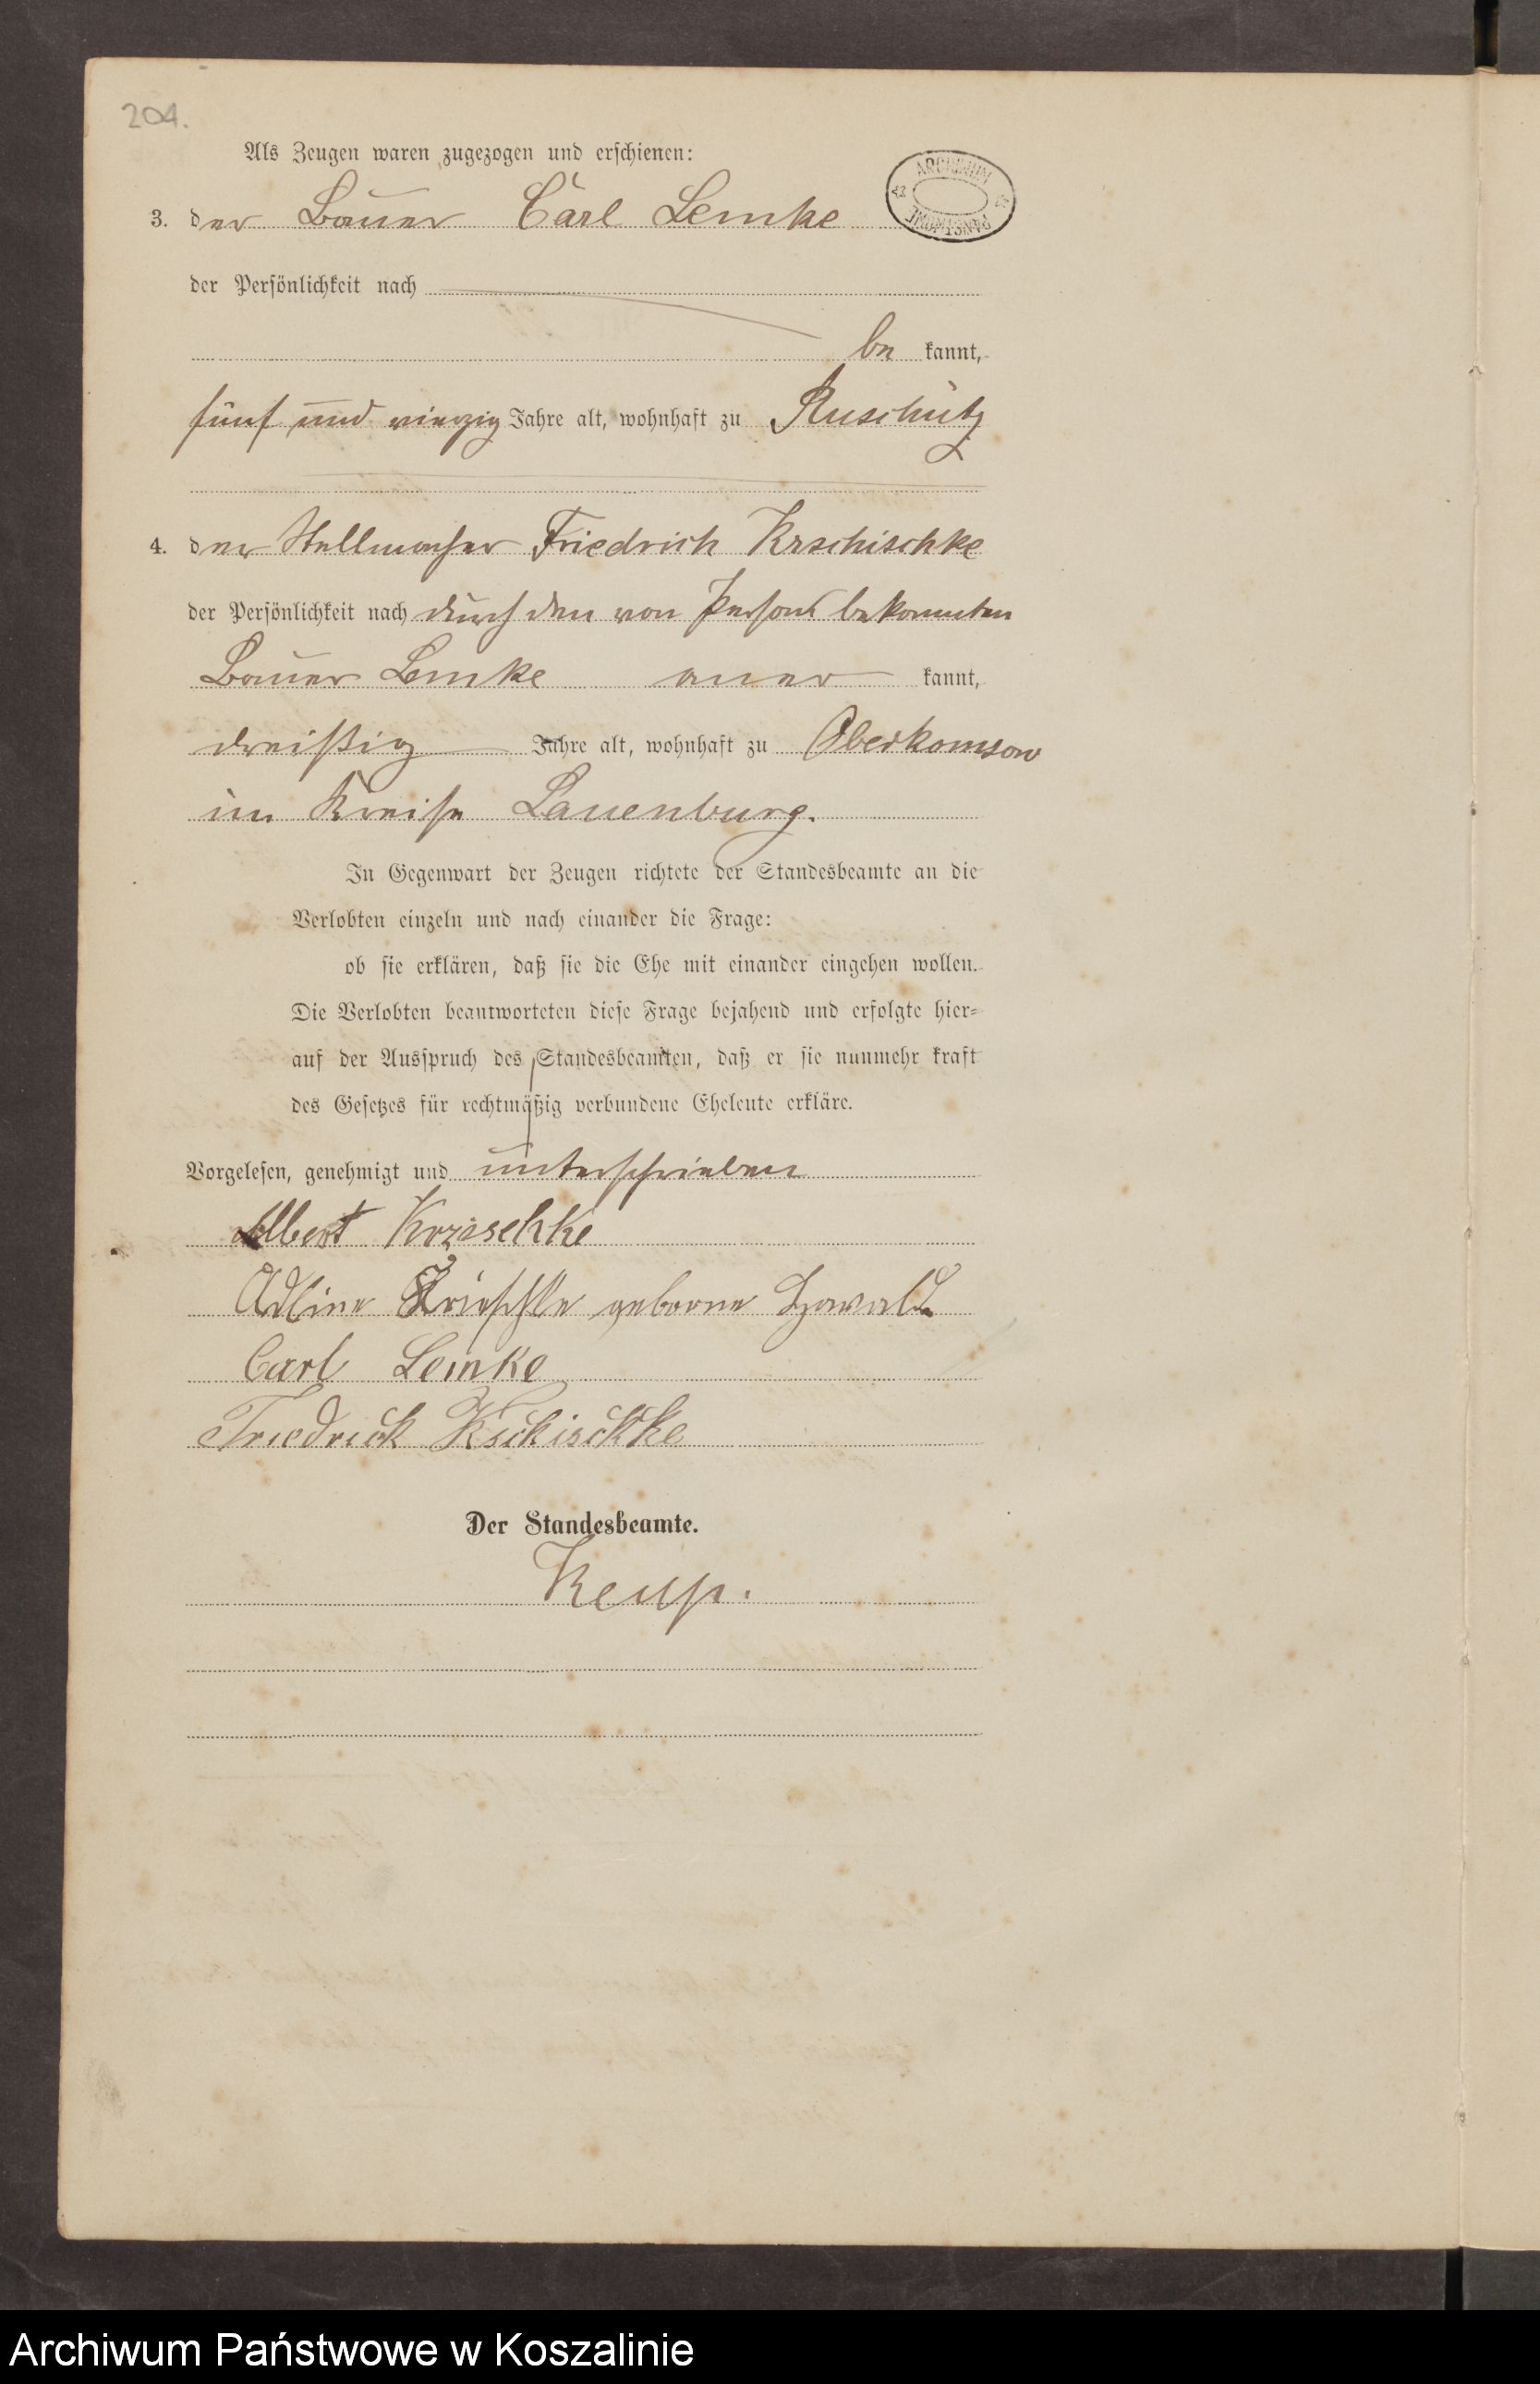 204.
Als Zeugen waren zugezogen und erschienen:
ARCHIWUM PAŃSTWOWE
3. der Bauer Carl Lemke
der Persönlichkeit nach
be kannt,
fünf und vierzig Jahre alt, wohnhaft zu Ruschütz
4. der Stellmacher Friedrich Krschischke
der Persönlichkeit nach durch den von Person bekannten
Bauer Lemke aner kannt,
dreißig Jahre alt, wohnhaft zu Oberkomsow
im Kreise Lauenburg.
In Gegenwart der Zeugen richtete der Standesbeamte an die
Verlobten einzeln und nach einander die Frage:
ob sie erklären, daß sie die Ehe mit einander eingehen wollen.
Die Verlobten beantworteten diese Frage bejahend und erfolgte hier=
auf der Ausspruch des Standesbeamten, daß er sie nunmehr kraft
des Gesetzes für rechtmäßig verbundene Eheleute erkläre.
Vorgelesen, genehmigt und unterschrieben
Albert Krzischke
Adline Krieschke geborne Howald
Carl Lemke
Friedrich Kschischke
Der Standesbeamte.
Archiwum Państwowe w Koszalinie